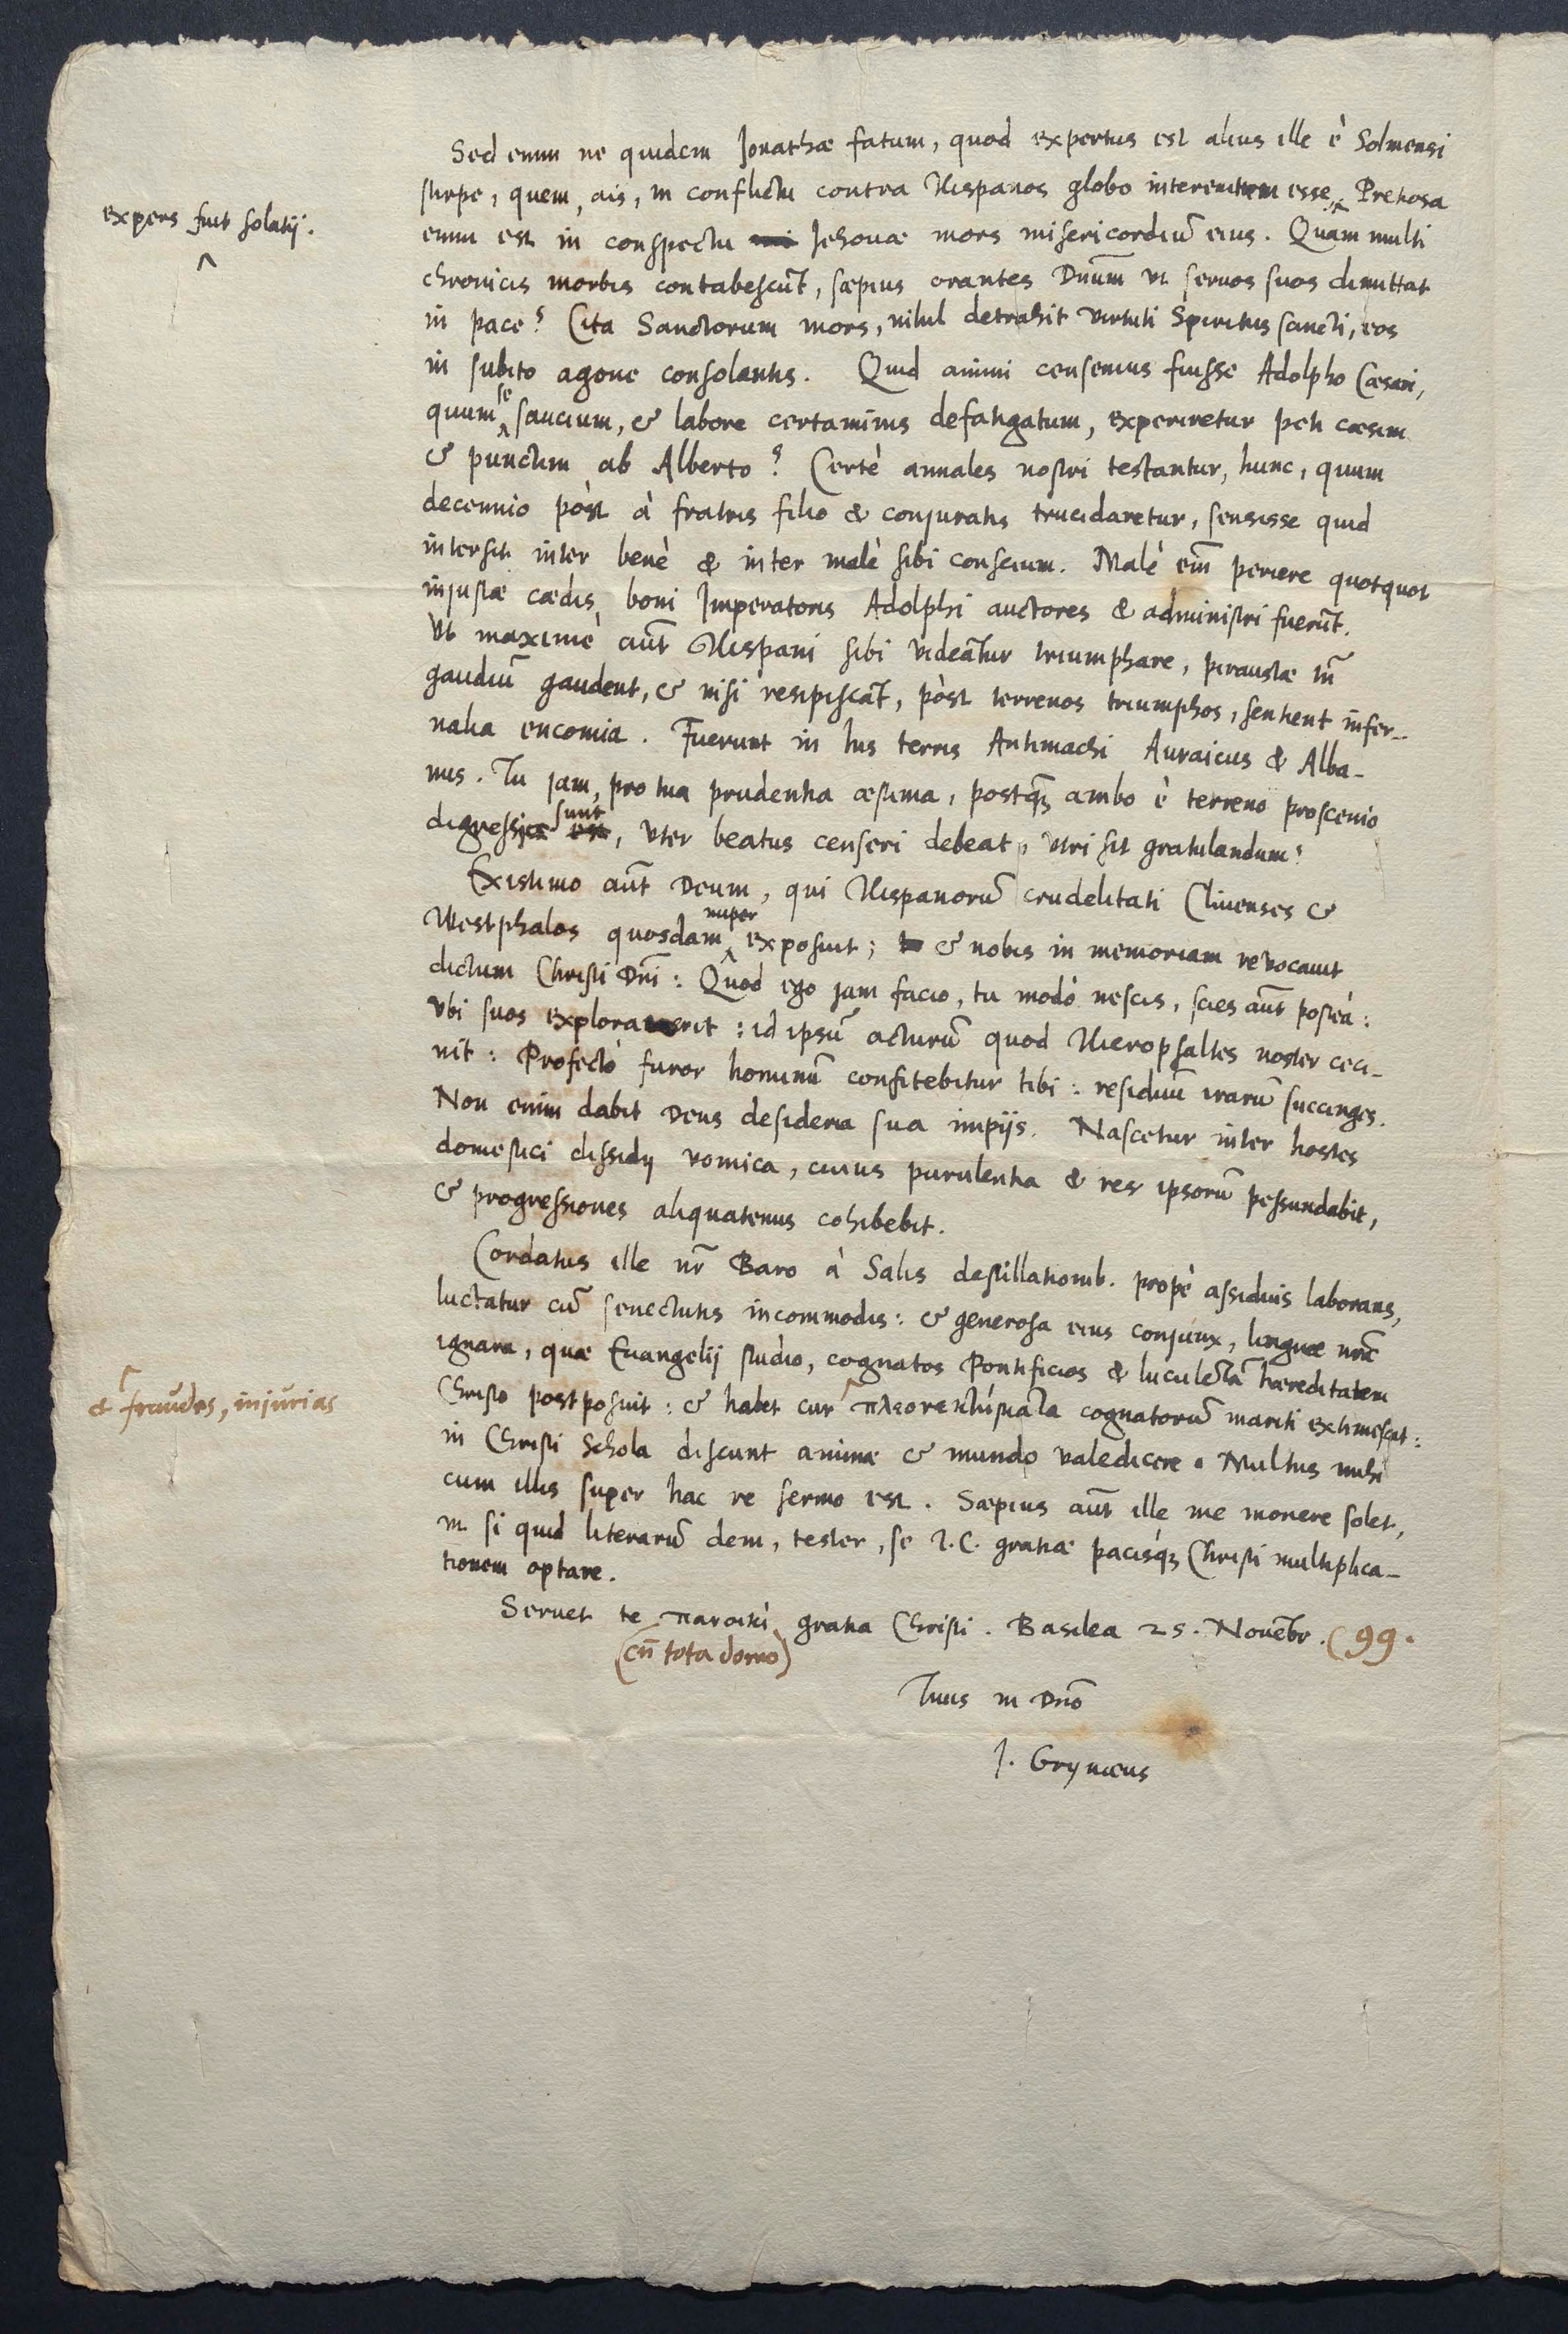 Sed enim ne quidem Jonathæ fatum, quod expertus est alius ille è Solmensi
stirpe, quem, ais, in conflictu contra Hispanos globo interemtum esse, Pretiosa
expers fuit solatij.
enim est in conspectu Jehouæ mors misericordiũ eius. Quam multi
chronicis morbis contabescũt, sæpius orantes Dnũm vt seruos suos dimittat
in pace? Cita Sanctorum mors, nihil detrahit virtuti Spiritus sancti, eos
in subito agone consolantis. Quid animi censemus fuisse Adolpho Cæsari,
quum se saucium, & labore certaminis defatigatum, experiretur peti cæsim
& punctim ab Alberto? Certè annales nostri testantur, hunc, quum
decennio pòst à fratris filio & conjuratis trucidaretur, sensisse quid
intersit inter benè & inter malè sibi conscium. Malè eiñ periere quotquot
injustæ cædis boni Imperatoris Adolphi auctores & administri fuerũt.
Vt maximè aũt Hispani sibi videãtur triumphare, piraustæ tñ
gaudiũ gaudent, & nisi resipiscãt, pòst terrenos triumphos, sentient infer-
nalia encomia. Fuerunt in his terris Antimachi Auraicus & Alba-
nus. Tu jam, pro tua prudentia æstima, postq̃ ambo è terreno proscenio
digressi sunt, vter beatus censeri debeat, vtri sit gratulandum?
Existimo aũt Deum, qui Hispanorũ crudelitati Cliuenses &
Westphalos quosdam nuper exposuit; & nobis in memoriam reuocauit
dictum Christi Dñi: Quod ego jam facio, tu modò nescis, scies aũt posteà:
vbi suos explorauerit: id ipsũ acturũ quod Hieropsaltes noster ceci-
nit: Profectò furor hominũ confitebitur tibi: residuũ irarũ succinges.
Non enim dabit Deus desideria sua impijs. Nascetur inter hostes
domestici dissidij vomica, cuius purulentia & res ipsorũ pessundabit,
& progressiones aliquatenus cohibebit.
Cordatus ille nr̃ Baro à Salis destillationib. propè assiduis laborans,
luctatur cũ senectutis incommodis: & generosa eius conjunx, linguæ nr̃æ
ignara, quæ Euangelij studio, cognatos Pontificios & luculẽtã hæreditatem
Christo postposuit: & habet cur πλεονεκτήματα cognatorũ mariti extimescat:
& fraudes, injurias
in Christi Schola discunt animæ & mundo valedicere. Multus mihi
cum illis super hac re sermo est. Sæpius aũt ille me monere solet,
vt si quid literarũ dem, tester, se T.C. gratiæ pacisq́ꝫ Christi multiplica-
tionem optare.
Seruet te πανοικὶ gratia Christi. Basilea 25. Nouẽbr. (99.
(cũ tota domo)
Tuus in Dño
J. Grynæus